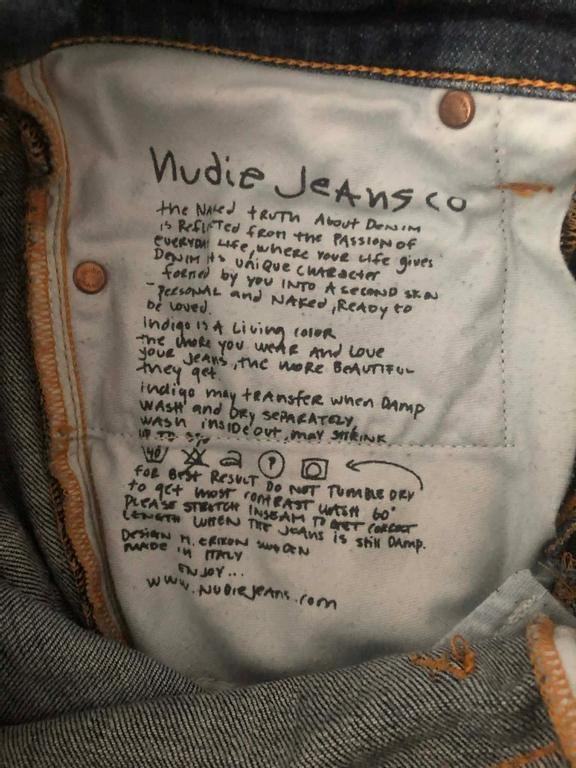 nudie Jeans co
the Naked truth About Denim
is Reflected from the PASSION of
everyday Life, where your Life gives
Denim its unique character
formed by you INTO A second skin
- Personal and Naked, Ready to
be loved.
Indigo is A Living color
the more you wear and Love
your Jeans, the more Beautiful
they get
indigo may transfer when Damp
Wash and Dry separately
wash inside out, may shrink
up to
40 P
for Best Result Do not tumble Dry
to get most contrast wash 60°
please stretch inseam to get correct
Length when the Jeans is still Damp.
Design M. Erixon Sweden
made in Italy
enjoy...
www.nudiejeans.com